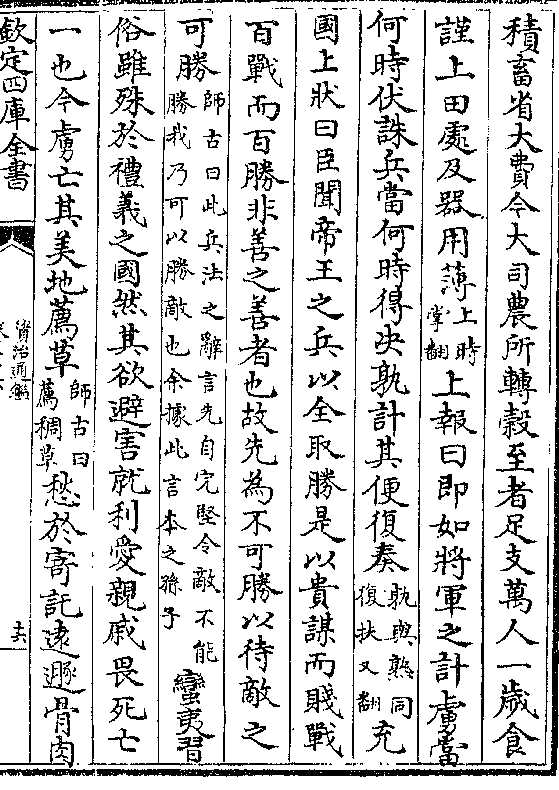 積畜省大費今大司農所轉穀至者足支萬人一歲食
謹上田處及器用薄上時掌翻上報曰即如將軍之計虜當
何時伏誅兵當何時得決孰計其便復奏孰與熟同復扶又翻充
國上狀曰臣聞帝王之兵以全取勝是以貴謀而賤戰
百戰而百勝非善之善者也故先為不可勝以待敵之
可勝師古曰此兵法之辭言先自完堅令敵不能勝我乃可以勝敵也余據此言本之孫子蠻夷習
俗雖殊於禮義之國然其欲避害就利愛親戚畏死亡
一也今虜亡其美地薦草師古曰薦稠草愁於寄託遠遯骨肉
欽定四庫全書
資治通鑑